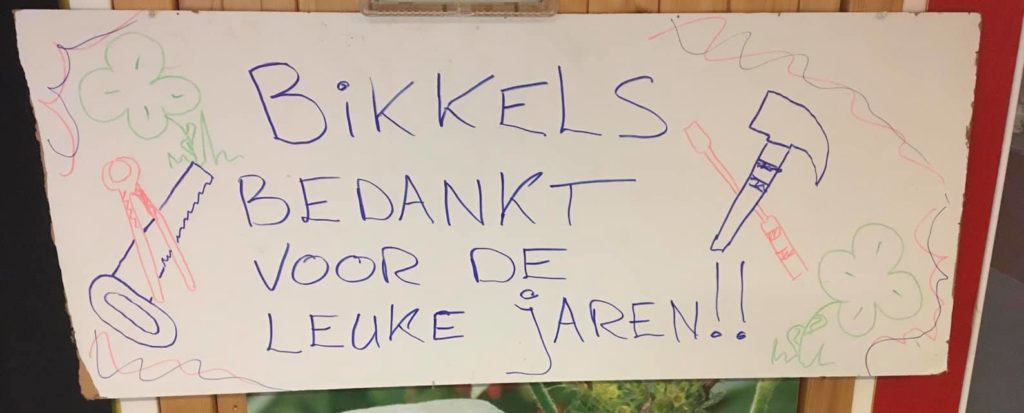 BiKKELS
BEDANKT
VOOR DE
LEUKE jAREN!!